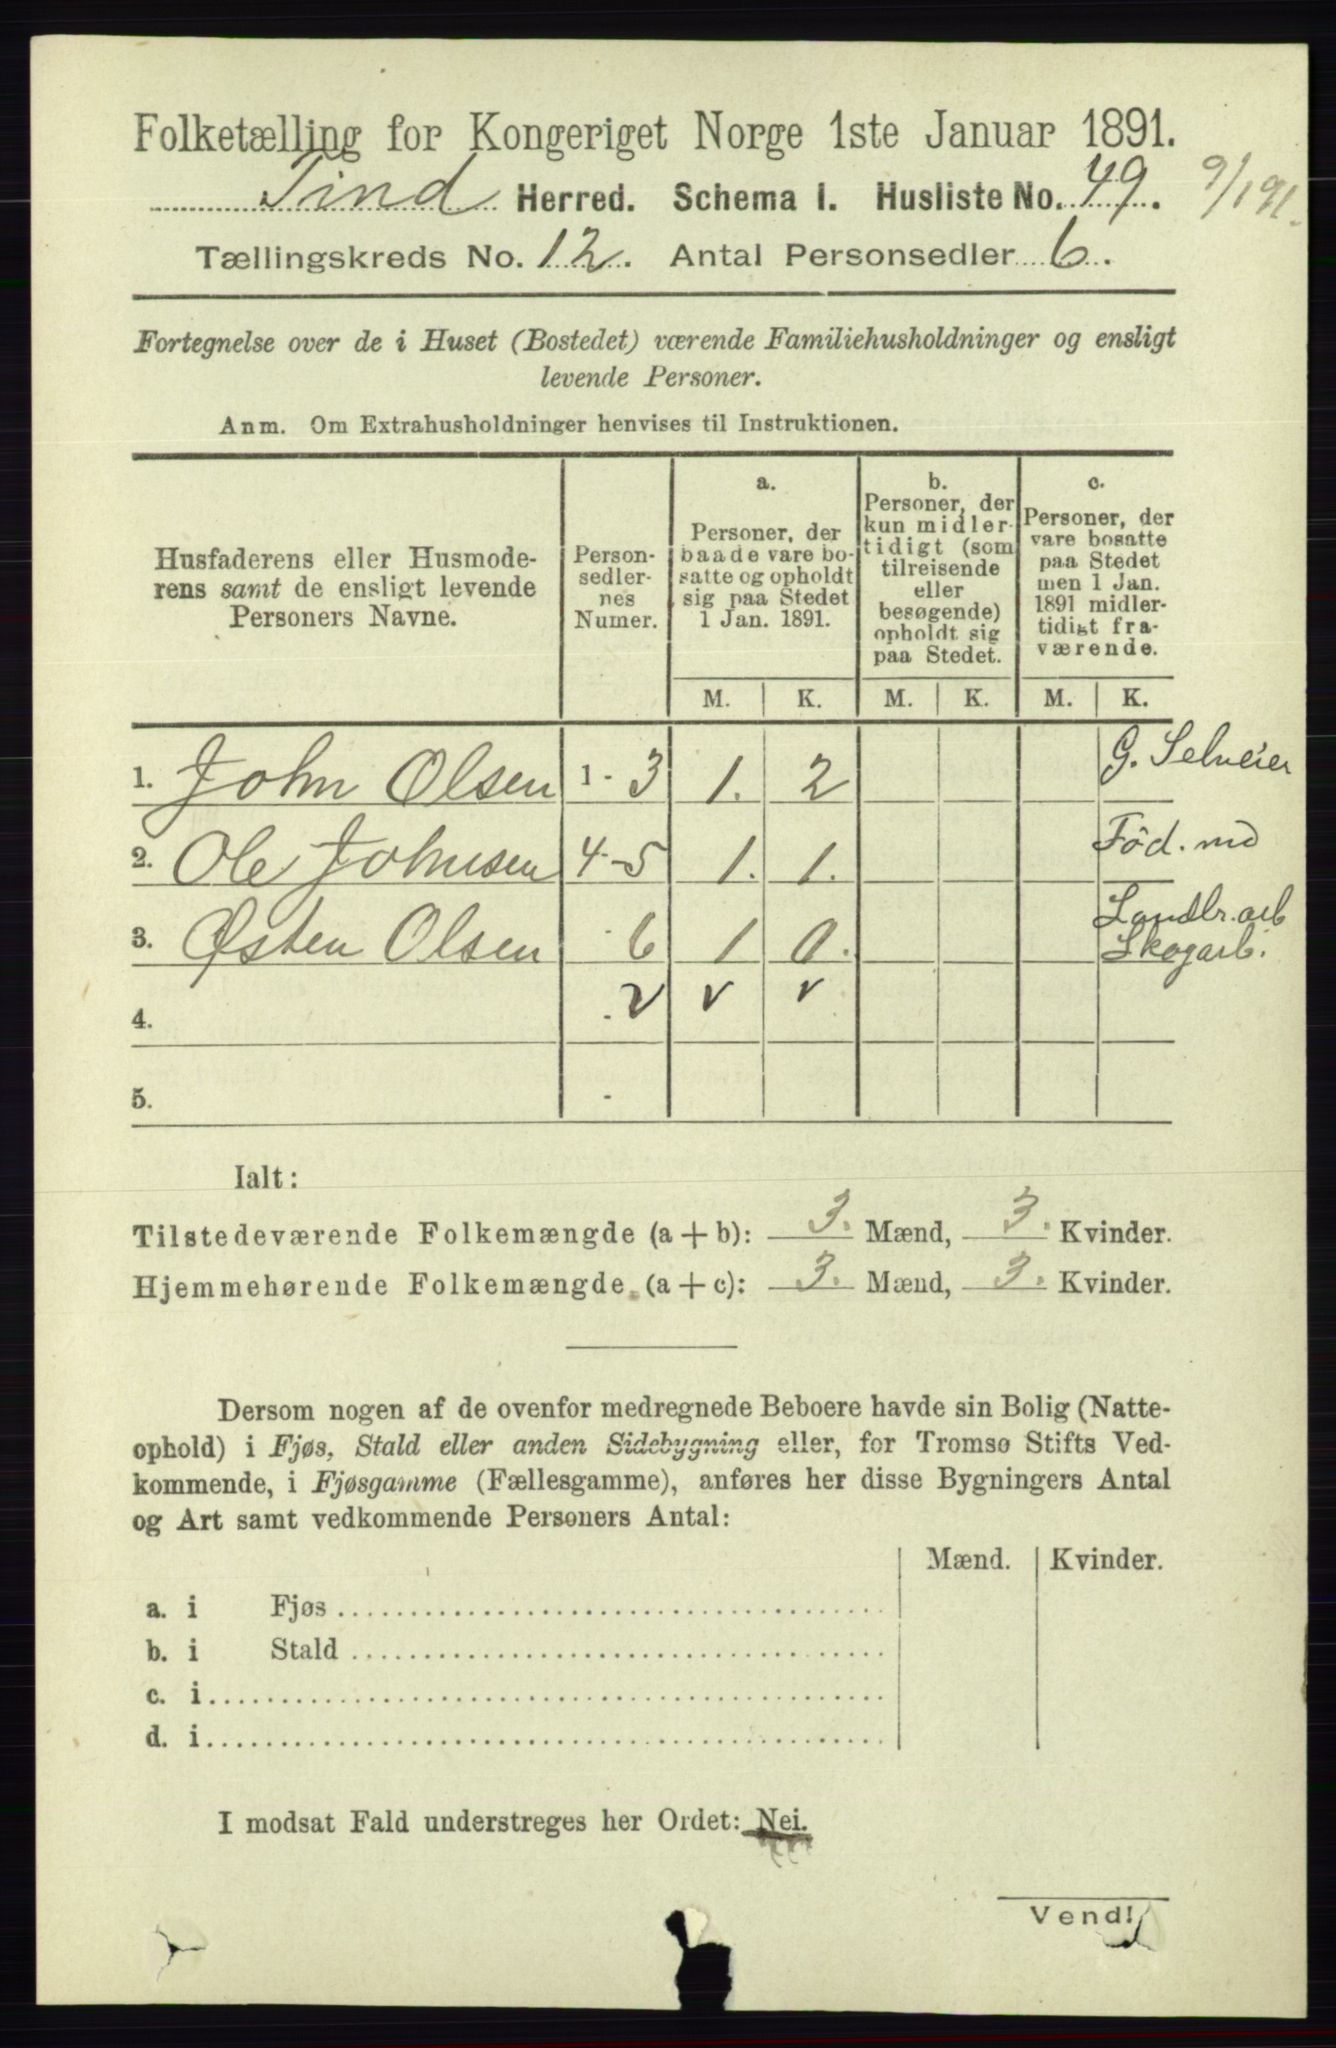 Folketælling for Kongeriget Norge 1ste Januar 1891.
Tind Herred. Schema I. Husliste No. 49. 9/1 91.
Tællingskreds No. 12. Antal Personsedler 6.
Fortegnelse over de i Huset (Bostedet) værende Familiehusholdninger og ensligt
levende Personer.
Anm. Om Extrahusholdninger henvises til Instruktionen.
Husfaderens eller Husmode-
rens samt de ensligt levende
Personers Navne.
Person-
sedler-
nes
Numer.
a.
Personer, der
baade vare bo-
satte og opholdt
sig paa Stedet
1 Jan. 1891.
b.
Personer, der
kun midler-
tidigt (som
tilreisende
eller
besøgende)
opholdt sig
paa Stedet.
c.
Personer, der
vare bosatte
paa Stedet
men 1 Jan.
1891 midler-
tidigt fra-
værende.
M. K. M. K. M. K.
1. John Olsen 1 - 3 1. 2 G. Selveier
2. Ole Johnsen 4 - 5 1. 1. Föd. md
3. Østen Olsen - 6 1 0. Landbr. arb
Skogarb.
4. v v v
5. -
Ialt:
Tilstedeværende Folkemængde (a + b): 3. Mænd, 3. Kvinder.
Hjemmehørende Folkemængde (a + c): 3. Mænd, 3. Kvinder.
Dersom nogen af de ovenfor medregnede Beboere havde sin Bolig (Natte-
ophold) i Fjøs, Stald eller anden Sidebygning eller, for Tromsø Stifts Ved-
kommende, i Fjøsgamme (Fællesgamme), anføres her disse Bygningers Antal
og Art samt vedkommende Personers Antal:
Mænd. Kvinder.
a. i Fjøs
b. i Stald
c. i
d. i
I modsat Fald understreges her Ordet: Nei.
Vend!